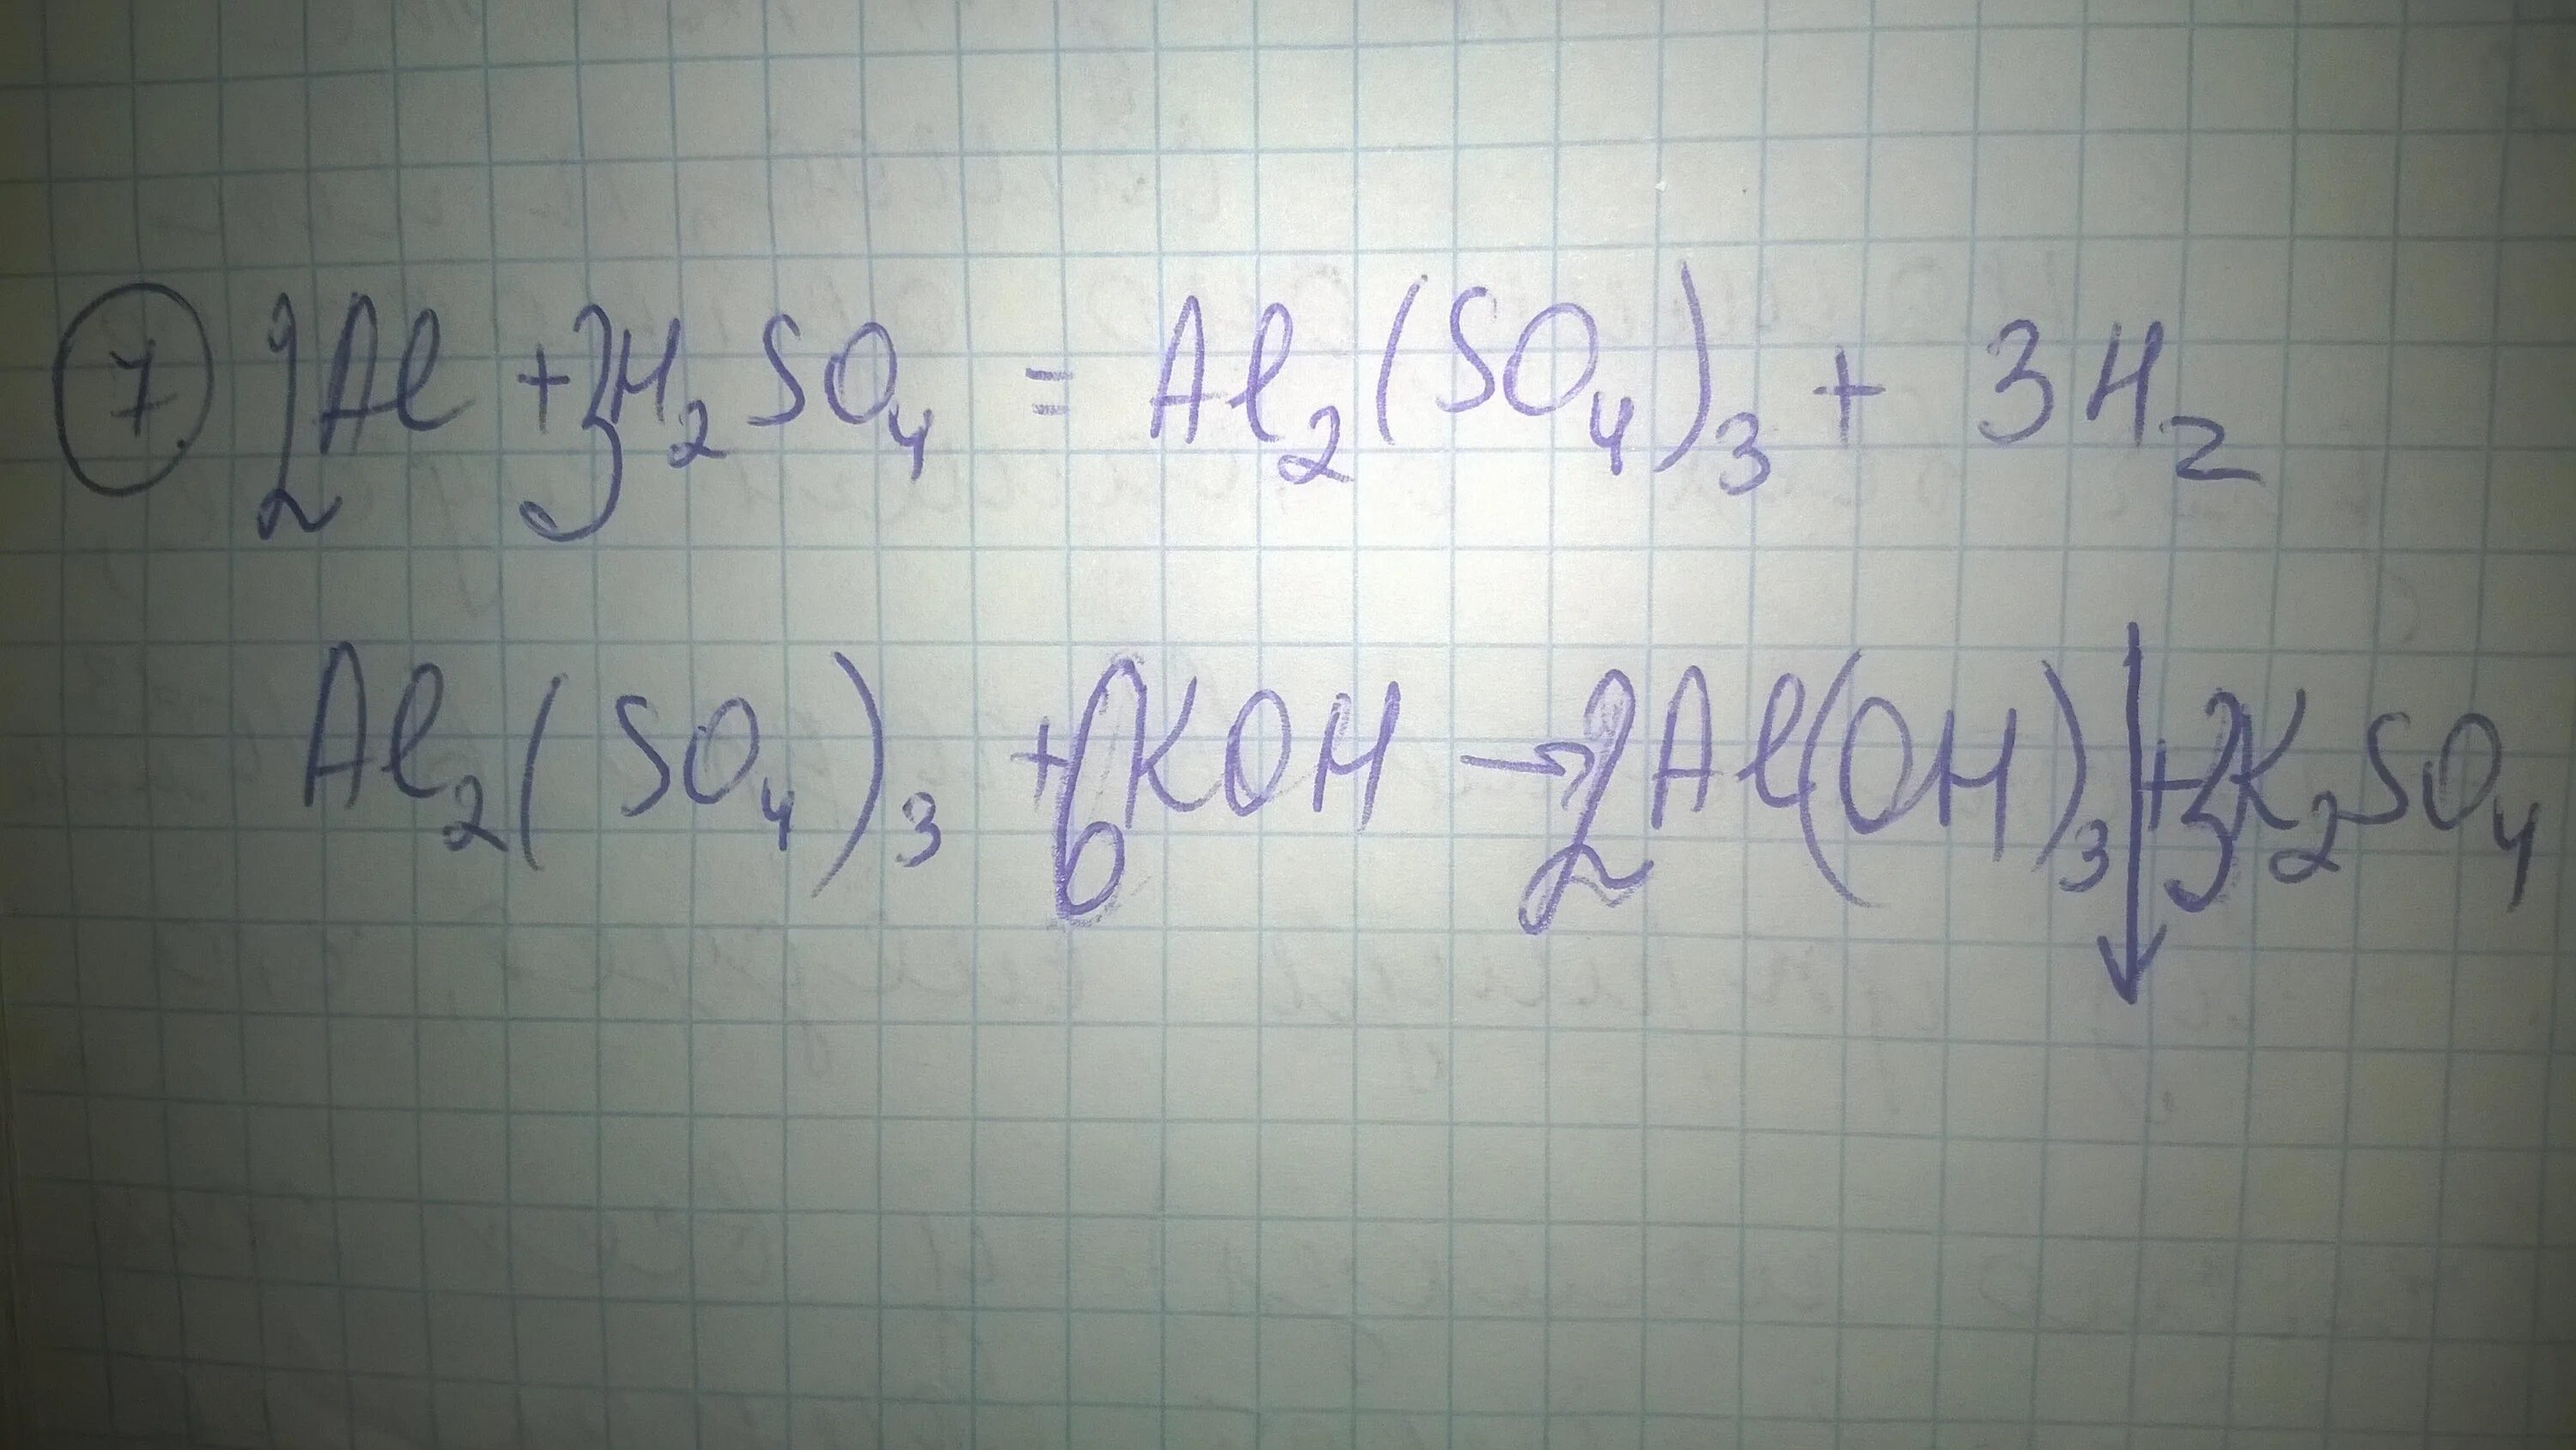 7. 2Al + 3H₂SO₄ = Al₂(SO₄)₃ + 3H₂
Al₂(SO₄)₃ + 6KOH → 2Al(OH)₃↓ + 3K₂SO₄